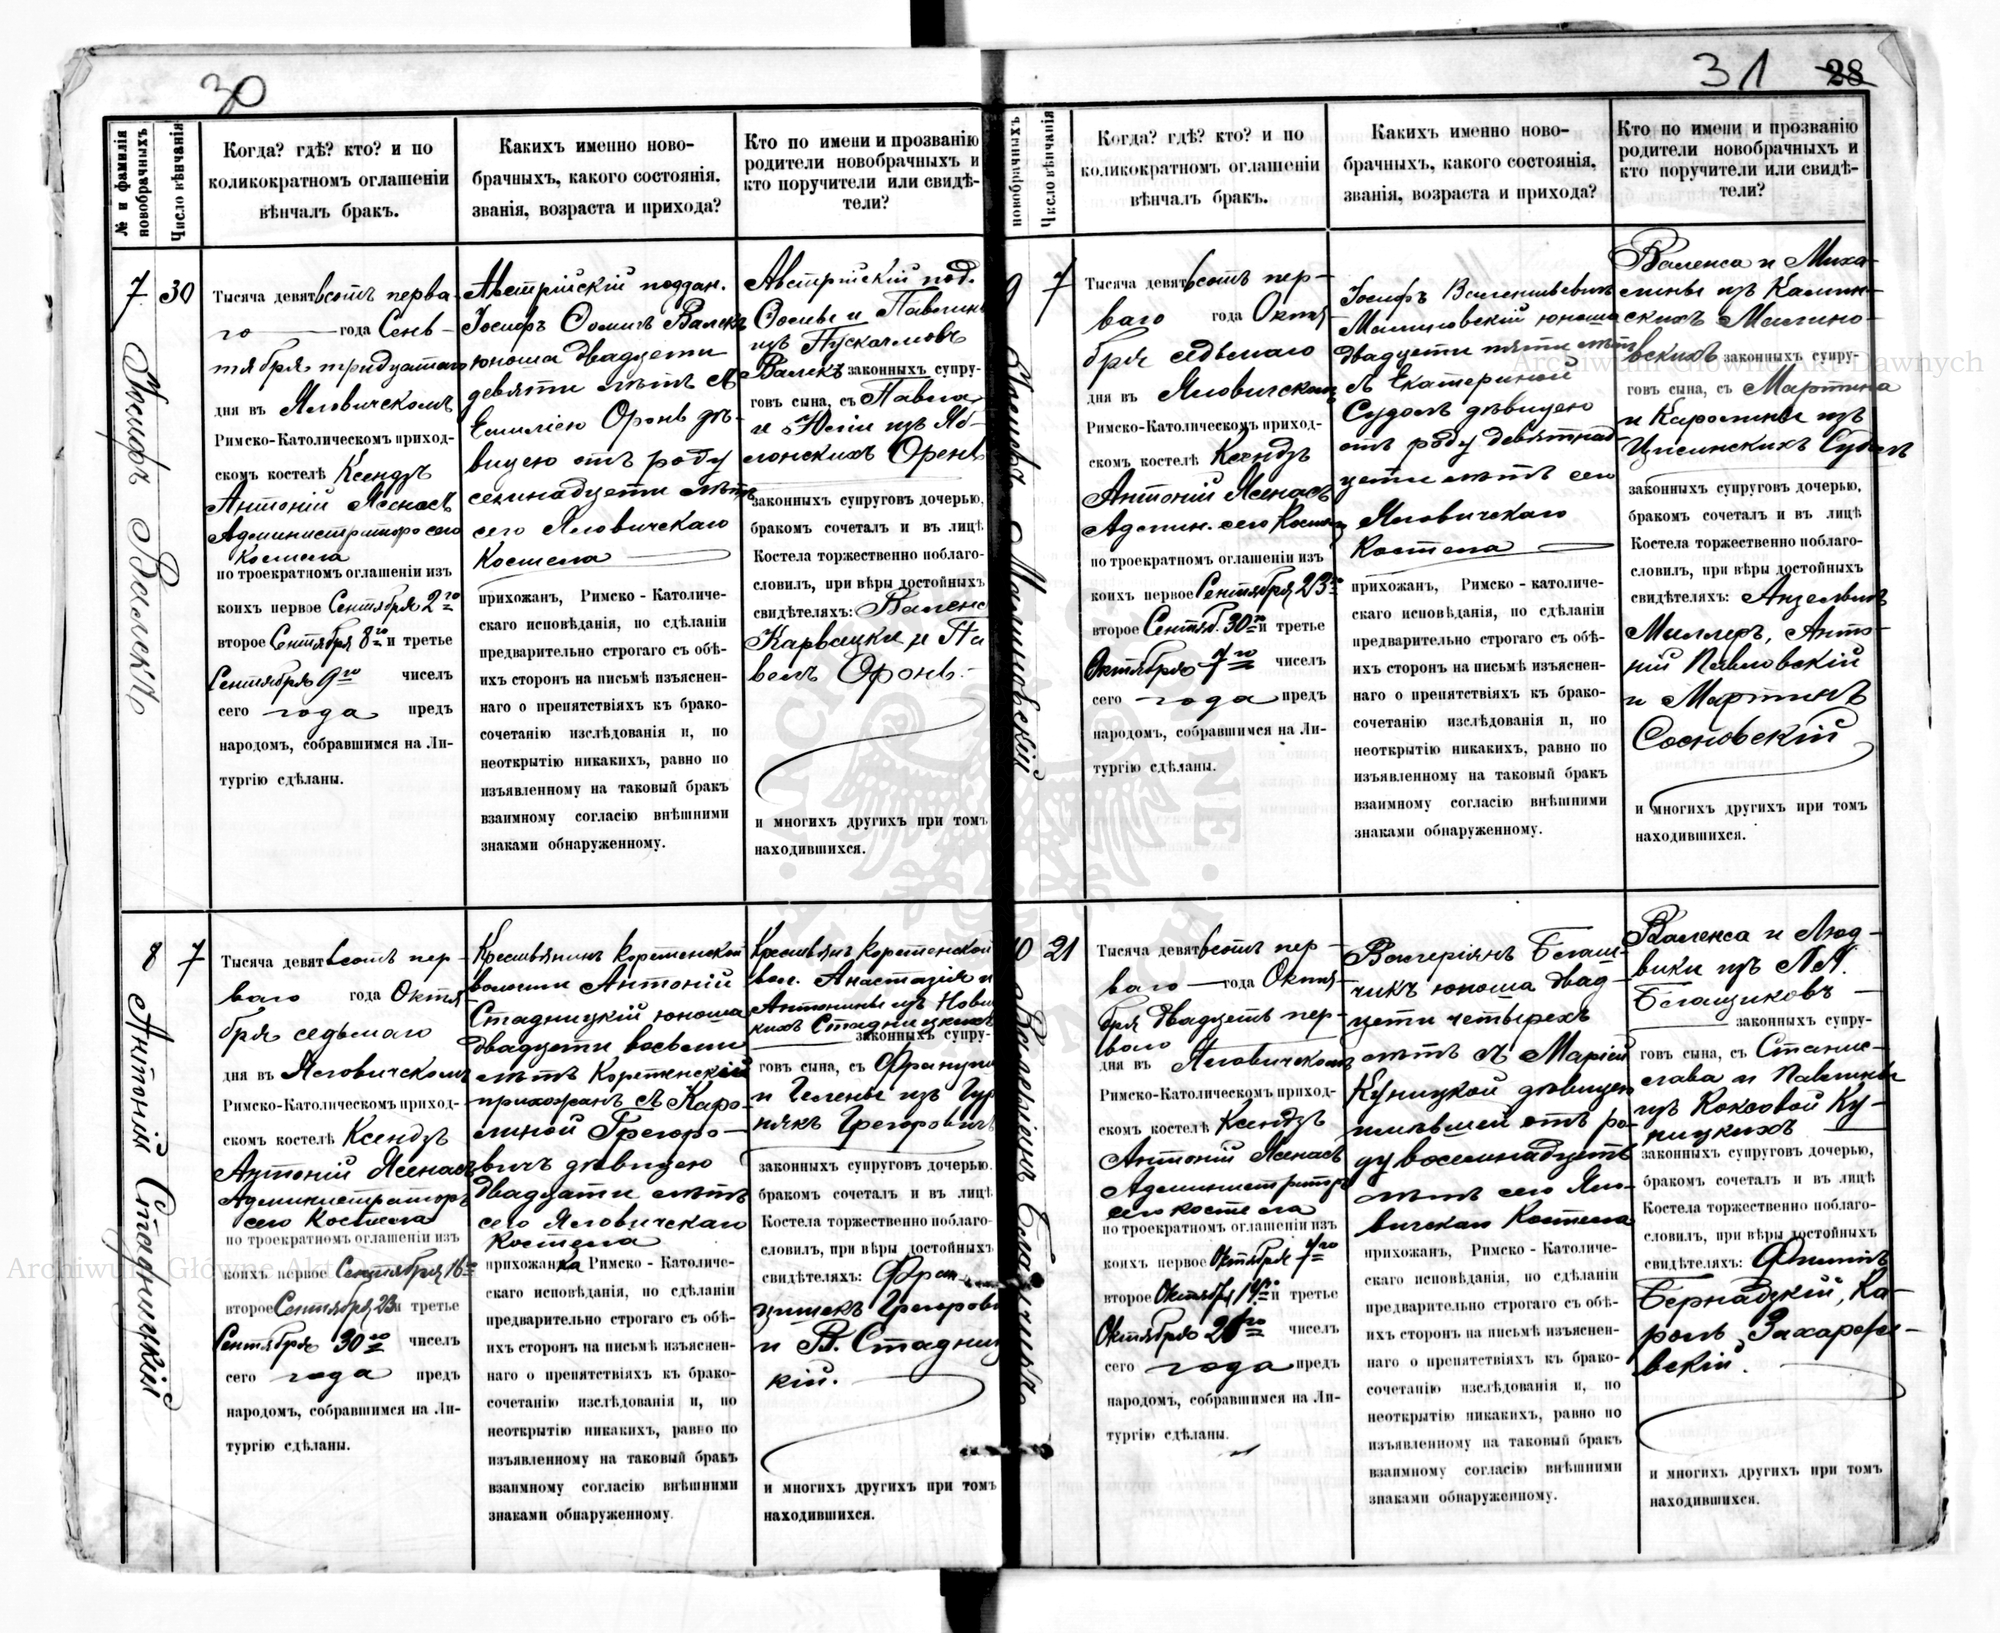 30
31
28
№ и фамилія новобрачныхъ
Число вѣнчанія
Когда? гдѣ? кто? и по
коликократномъ оглашеніи
вѣнчалъ бракъ.
Какихъ именно ново-
брачныхъ, какого состоянія,
званія, возраста и прихода?
Кто по имени и прозванію
родители новобрачныхъ и
кто поручители или свидѣ-
тели?
7
30
Іосифъ Валекъ
Тысяча девятьсотъ перва
го года Сен-
тября тридцатаго
дня въ Яловичскомъ
Римско-Католическомъ приход-
скомъ костелѣ Ксендзъ
Антоній Ясенасъ
Администраторъ сего
Костела
по троекратномъ оглашеніи изъ
коихъ первое Сентября 2го
второе Сентября 8го и третье
Сентября 9го чиселъ
сего года предъ
народомъ, собравшимся на Ли-
тургію сдѣланы.
Австрійскій поддан.
Іосифъ Валекъ
юноша двадцати
девяти лѣтъ съ
Емиліею Оронь дѣ-
вицею отъ роду
семнадцати лѣтъ
сего Яловичскаго
Костела
прихожанъ, Римско - Католиче-
скаго исповѣданія, по сдѣланіи
предварительно строгаго съ обѣ-
ихъ сторонъ на письмѣ изъяснен-
наго о препятствіяхъ къ брако-
сочетанію изслѣдованія и, по
неоткрытію никакихъ, равно по
изъявленному на таковый бракъ
взаимному согласію внѣшними
знаками обнаруженному.
Австрійскій под.
изъ
Валекъ законныхъ супру-
говъ сына, съ Павла
и Юліи изъ Яб-
лонскихъ Орень
законныхъ супруговъ дочерью,
бракомъ сочеталъ и въ лицѣ
Костела торжественно поблаго-
словилъ, при вѣры достойныхъ
свидѣтеляхъ: Валенс
и Па
велъ Оронь.
и многихъ другихъ при томъ
находившихся.
8
7
Антоній Стадницкій
Тысяча девятьсотъ пер-
ваго года Октя
бря седьмаго
дня въ Яловичскомъ
Римско-Католическомъ приход-
скомъ костелѣ Ксендзъ
Антоній Ясенасъ
Администраторъ
сего Костела
по троекратномъ оглашеніи изъ
коихъ первое Сентября 16го
второе Сентября 23 и третье
Сентября 30го чиселъ
сего года предъ
народомъ, собравшимся на Ли-
тургію сдѣланы.
Крестьянинъ Корытенской
волости Антоній
Стадницкій юноша
двадцати восьми
лѣтъ Корытенскій
прихожанъ съ Каро-
линой Грегоро-
вичъ дѣвицею
двадцати лѣтъ
сего Яловичскаго
Костела
прихожанка Римско - Католиче-
скаго исповѣданія, по сдѣланіи
предварительно строгаго съ обѣ-
ихъ сторонъ на письмѣ изъяснен-
наго о препятствіяхъ къ брако-
сочетанію изслѣдованія и, по
неоткрытію никакихъ, равно по
изъявленному на таковый бракъ
взаимному согласію внѣшними
знаками обнаруженному.
Крестьянъ Корытенской
вол. Анастазія и
Антонины изъ Нови
кихъ Стадницкихъ
законныхъ супру-
говъ сына, съ
и Гелены изъ Гур
някъ Грегоровичъ
законныхъ супруговъ дочерью,
бракомъ сочеталъ и въ лицѣ
Костела торжественно поблаго-
словилъ, при вѣры достойныхъ
свидѣтеляхъ: Фран-
цишекъ Грегорови
и В. Стадниц
кій.
и многихъ другихъ при томъ
находившихся.
новобрачныхъ
Число вѣнчанія
Когда? гдѣ? кто? и по
коликократномъ оглашеніи
вѣнчалъ бракъ.
Какихъ именно ново-
брачныхъ, какого состоянія,
званія, возраста и прихода?
Кто по имени и прозванію
родители новобрачныхъ и
кто поручители или свидѣ-
тели?
9
7
Іосифъ Малиновскій
Тысяча девятьсотъ пер-
ваго года Октя-
бря седьмаго
дня въ Яловичском
Римско-Католическомъ приход-
скомъ костелѣ Ксендзъ
Антоній Ясенасъ
Админ. сего Костела
по троекратномъ оглашеніи изъ
коихъ первое Сентября 23го
второе Сентяб. 30го и третье
Октября 7го чиселъ
сего года предъ
народомъ, собравшимся на Ли-
тургію сдѣланы.
Іосифъ Валентьевичъ
Малиновскій юноша
двадцати пяти лѣтъ
съ Екатериной
Судолъ дѣвицею
отъ роду девятнад-
цети лѣтъ сего
Яловичскаго
Костела
прихожанъ, Римско - католиче-
скаго исповѣданія, по сдѣланіи
предварительно строгаго съ обѣ-
ихъ сторонъ на письмѣ изъяснен-
наго о препятствіяхъ къ брако-
сочетанію изслѣдованія и, по
неоткрытію никакихъ, равно по
изъявленному на таковый бракъ
взаимному согласію внѣшними
знаками обнаруженному.
Валенса и Миха-
лины изъ Камин-
скихъ Малино-
вскихъ законныхъ супру-
говъ сына, съ Мартина
и Каролины изъ
Судолъ
законныхъ супруговъ дочерью,
бракомъ сочеталъ и въ лицѣ
Костела торжественно поблаго-
словилъ, при вѣры достойныхъ
свидѣтеляхъ: Анзельмъ
Миллеръ, Анто-
ній Павловскій
и Мартинъ
Сосновскій
и многихъ другихъ при томъ
находившихся.
10
21
Валеріянъ Бгащикъ
Тысяча девятьсотъ пер-
ваго года Октя-
бря двадцать пер-
ваго
дня въ Яловичскомъ
Римско-Католическомъ приход-
скомъ костелѣ Ксендзъ
Антоній Ясенасъ
Администраторъ
сего костела
по троекратномъ оглашеніи изъ
коихъ первое Октября 7го
второе Октября 14го и третье
Октября чиселъ
сего года предъ
народомъ, собравшимся на Ли-
тургію сдѣланы.
Валеріянъ
юноша двад-
цети четырехъ
лѣтъ съ Маріей
Куницкой дѣвицею
имѣвшей отъ ро-
ду восемнадцать
лѣтъ сего Яло-
вичскаго Костела
прихожанъ, Римско - Католиче-
скаго исповѣданія, по сдѣланіи
предварительно строгаго съ обѣ-
ихъ сторонъ на письмѣ изъяснен-
наго о препятствіяхъ къ брако-
сочетанію изслѣдованія и, по
неоткрытію никакихъ, равно по
изъявленному на таковый бракъ
взаимному согласію внѣшними
знаками обнаруженному.
Валенса и Люд-
вики изъ NN.
законныхъ супру-
говъ сына, съ Станис-
лава и Павлины
изъ Коксовой Ку-
ницкихъ
законныхъ супруговъ дочерью,
бракомъ сочеталъ и въ лицѣ
Костела торжественно поблаго-
словилъ, при вѣры достойныхъ
свидѣтеляхъ: Филипъ
Бернадзкій, Ка-
роль Захарже-
вскій.
и многихъ другихъ при томъ
находившихся.
Archiwum Główne Akt Dawnych
Archiwum Główne Akt